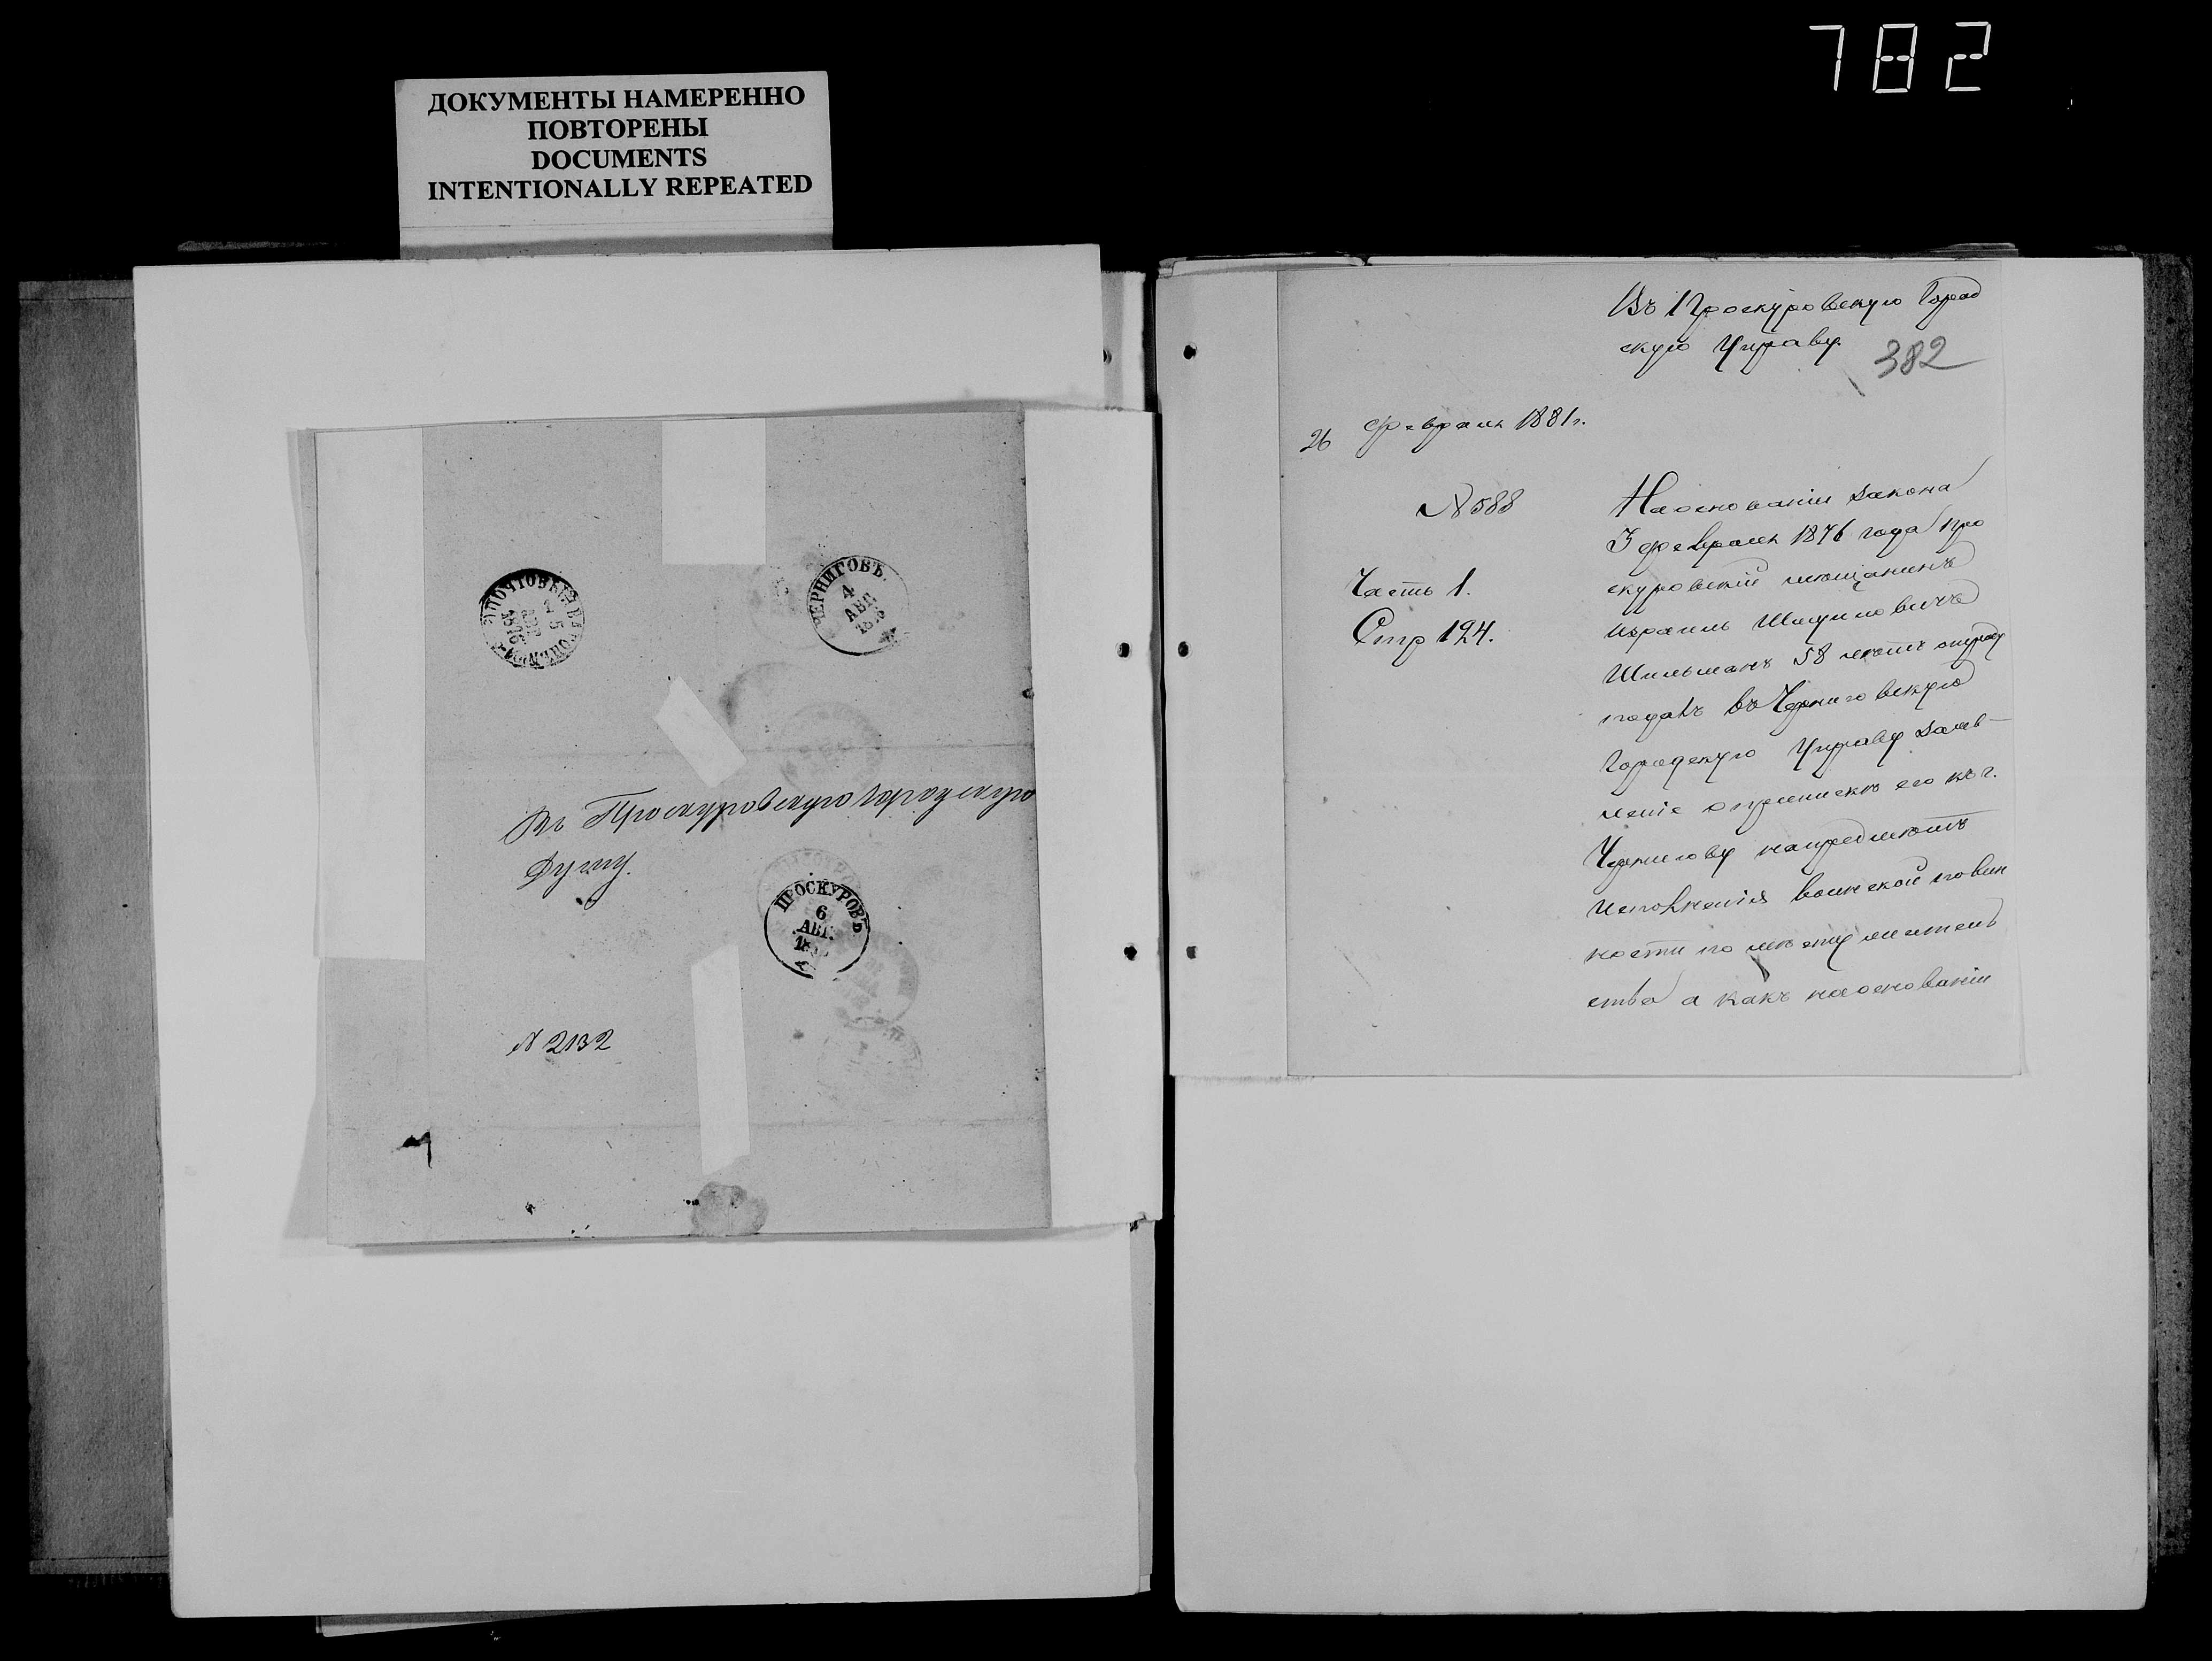 782
ДОКУМЕНТЫ НАМЕРЕННО
ПОВТОРЕНЫ
DOCUMENTS
INTENTIONALLY REPEATED
ПОЧТОВЫЙ ВАГОНЪ
5
АВГ.
1876
ЧЕРНИГОВЪ.
4
АВГ.
Въ Проскуровскую городскую
Думу.
ПРОСКУРОВЪ
6
АВГ.
N 2132
Въ Проскуровскую Город
скую Управу.
382
26 февраля 1881 г.
N 588
Часть 1.
Стр 194.
На основаніи закона
3 февраля 1876 года про
скуровскій мещанинъ
Израиль
Шильманъ 58 летъ
подалъ въ Черниговскую
Городскую Управу заяв-
леніе о припискѣ его къ г.
Чернигову на предметъ
исполненія воинской повин
ности по месту житель
ства а какъ на основаніи